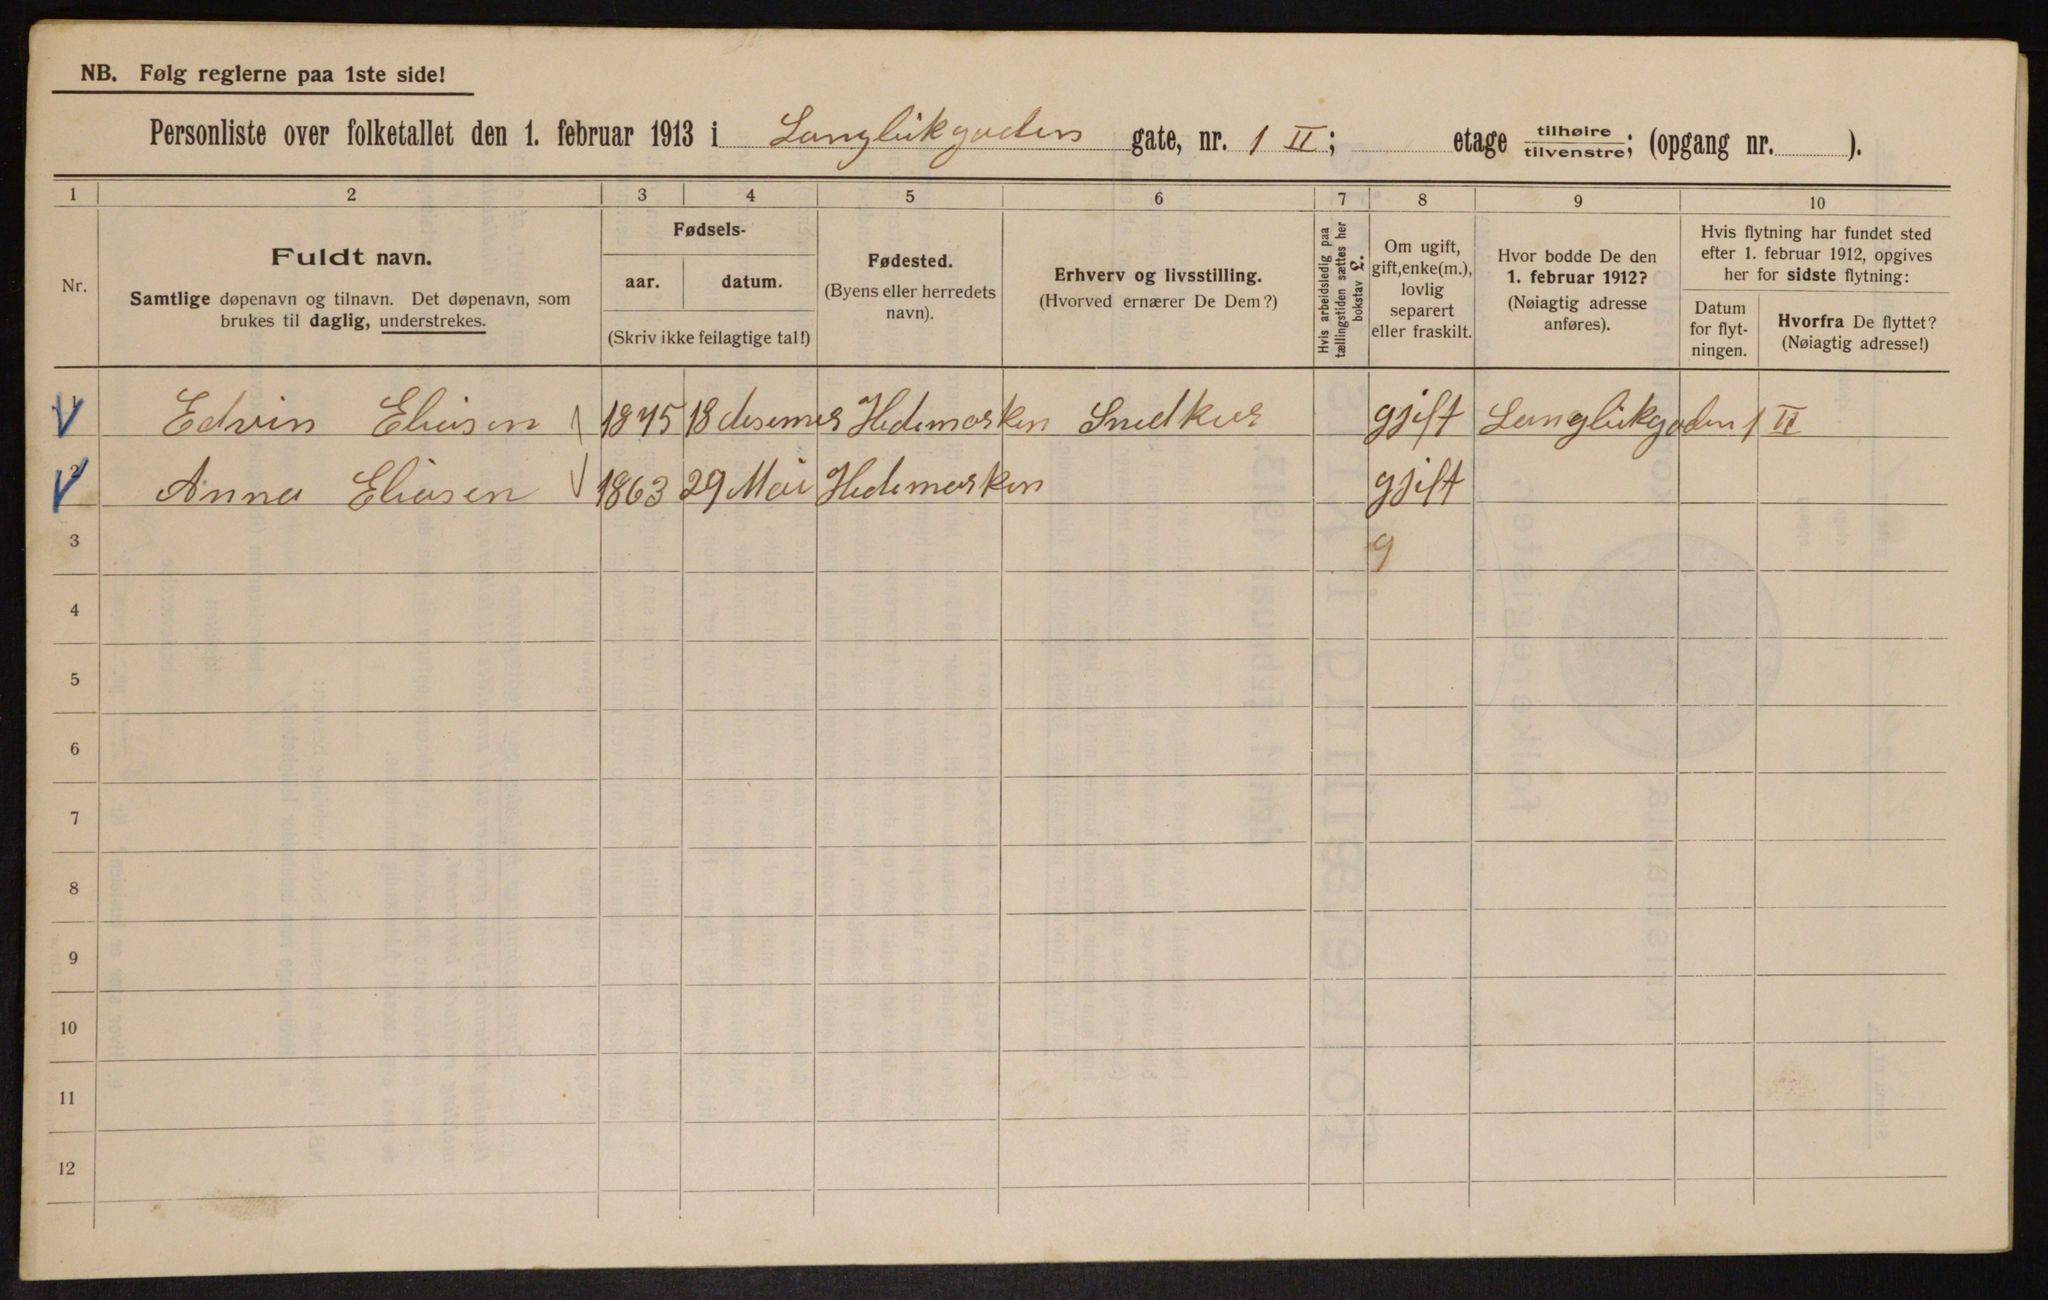 NB. Følg reglerne paa 1ste side!
Personliste over folketallet den 1. februar 1913 i Langlikgaden gate, nr. 1 II; etage tilhøire/tilvenstre; (opgang nr. ).
1 2 3 4 5 6 7 8 9 10
Nr.
Fuldt navn.
Samtlige døpenavn og tilnavn. Det døpenavn, som
brukes til daglig, understrekes.
Fødsels-
aar. datum.
(Skriv ikke feilagtige tal!)
Fødested.
(Byens eller herredets
navn).
Erhverv og livsstilling.
(Hvorved ernærer De Dem?)
Hvis arbeidsledig paa
tællingstiden sættes her
bokstav L.
Om ugift,
gift, enke(m.),
lovlig
separert
eller fraskilt.
Hvor bodde De den
1. februar 1912?
(Nøiagtig adresse
anføres).
Hvis flytning har fundet sted
efter 1. februar 1912, opgives
her for sidste flytning:
Datum
for flyt-
ningen.
Hvorfra De flyttet?
(Nøiagtig adresse!)
1 Edvin Eliasen 1875 18 desemer Hedemarken Snedker gjift Langlikgaden 1 II
2 Anna Eliasen 1863 29 Mai Hedemarken gjift
3 g
4
5
6
7
8
9
10
11
12